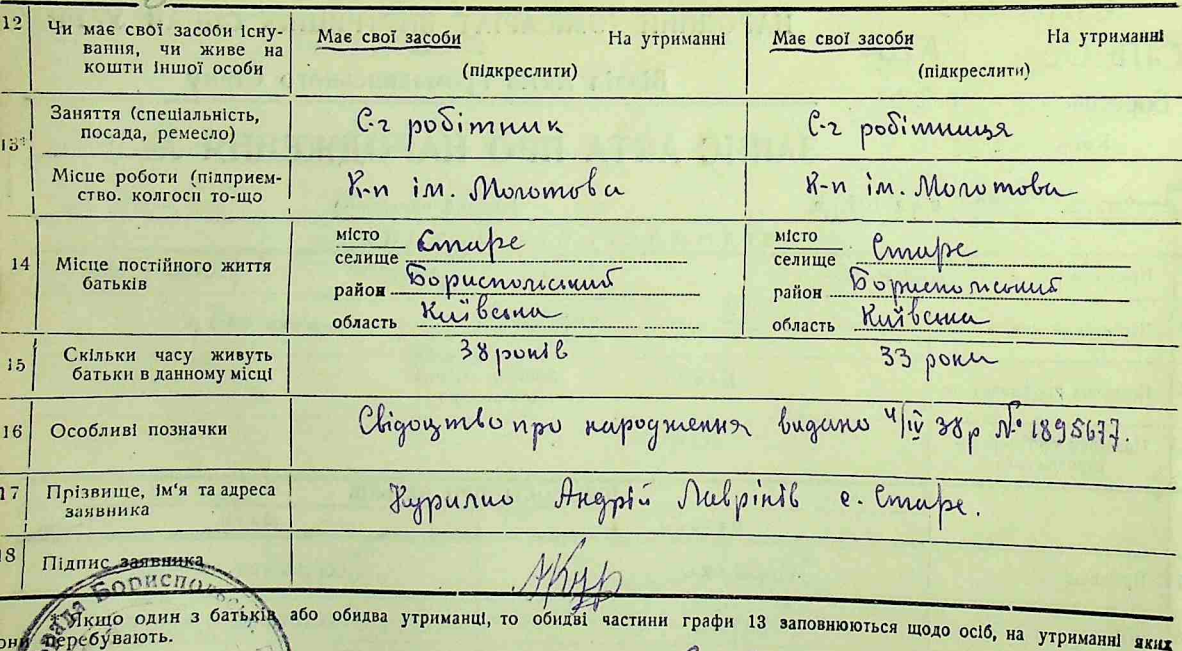 12 Чи має свої засоби існу-
вання, чи живе на
кошти іншої особи
Має свої засоби На утриманні Має свої засоби На утриманні
(підкреслити) (підкреслити)
13* Заняття (спеціальність,
посада, ремесло)
С-г робітник С-г робітниця
Місце роботи (підприєм-
ство. колгосп то-що
К-п ім. Молотова К-п ім. Молотова
14 Місце постійного життя
батьків
місто
селище Старе
район Бориспольский
область Київська
місто
селище Старе
район Бориспольский
область Київська
15 Скільки часу живуть
батьки в данному місці
38 років 33 роки
16 Особливі позначки Свідоцтво про народження видано 4/IV 38 р № 1895677.
17 Прізвище, ім'я та адреса
заявника
Курилко Андрій Лаврінів с. Старе.
18 Підпис заявника АКур
* Якщо один з батьків або обидва утриманці, то обидві частини графи 13 заповнюються щодо осіб, на утриманні яких
они перебувають.